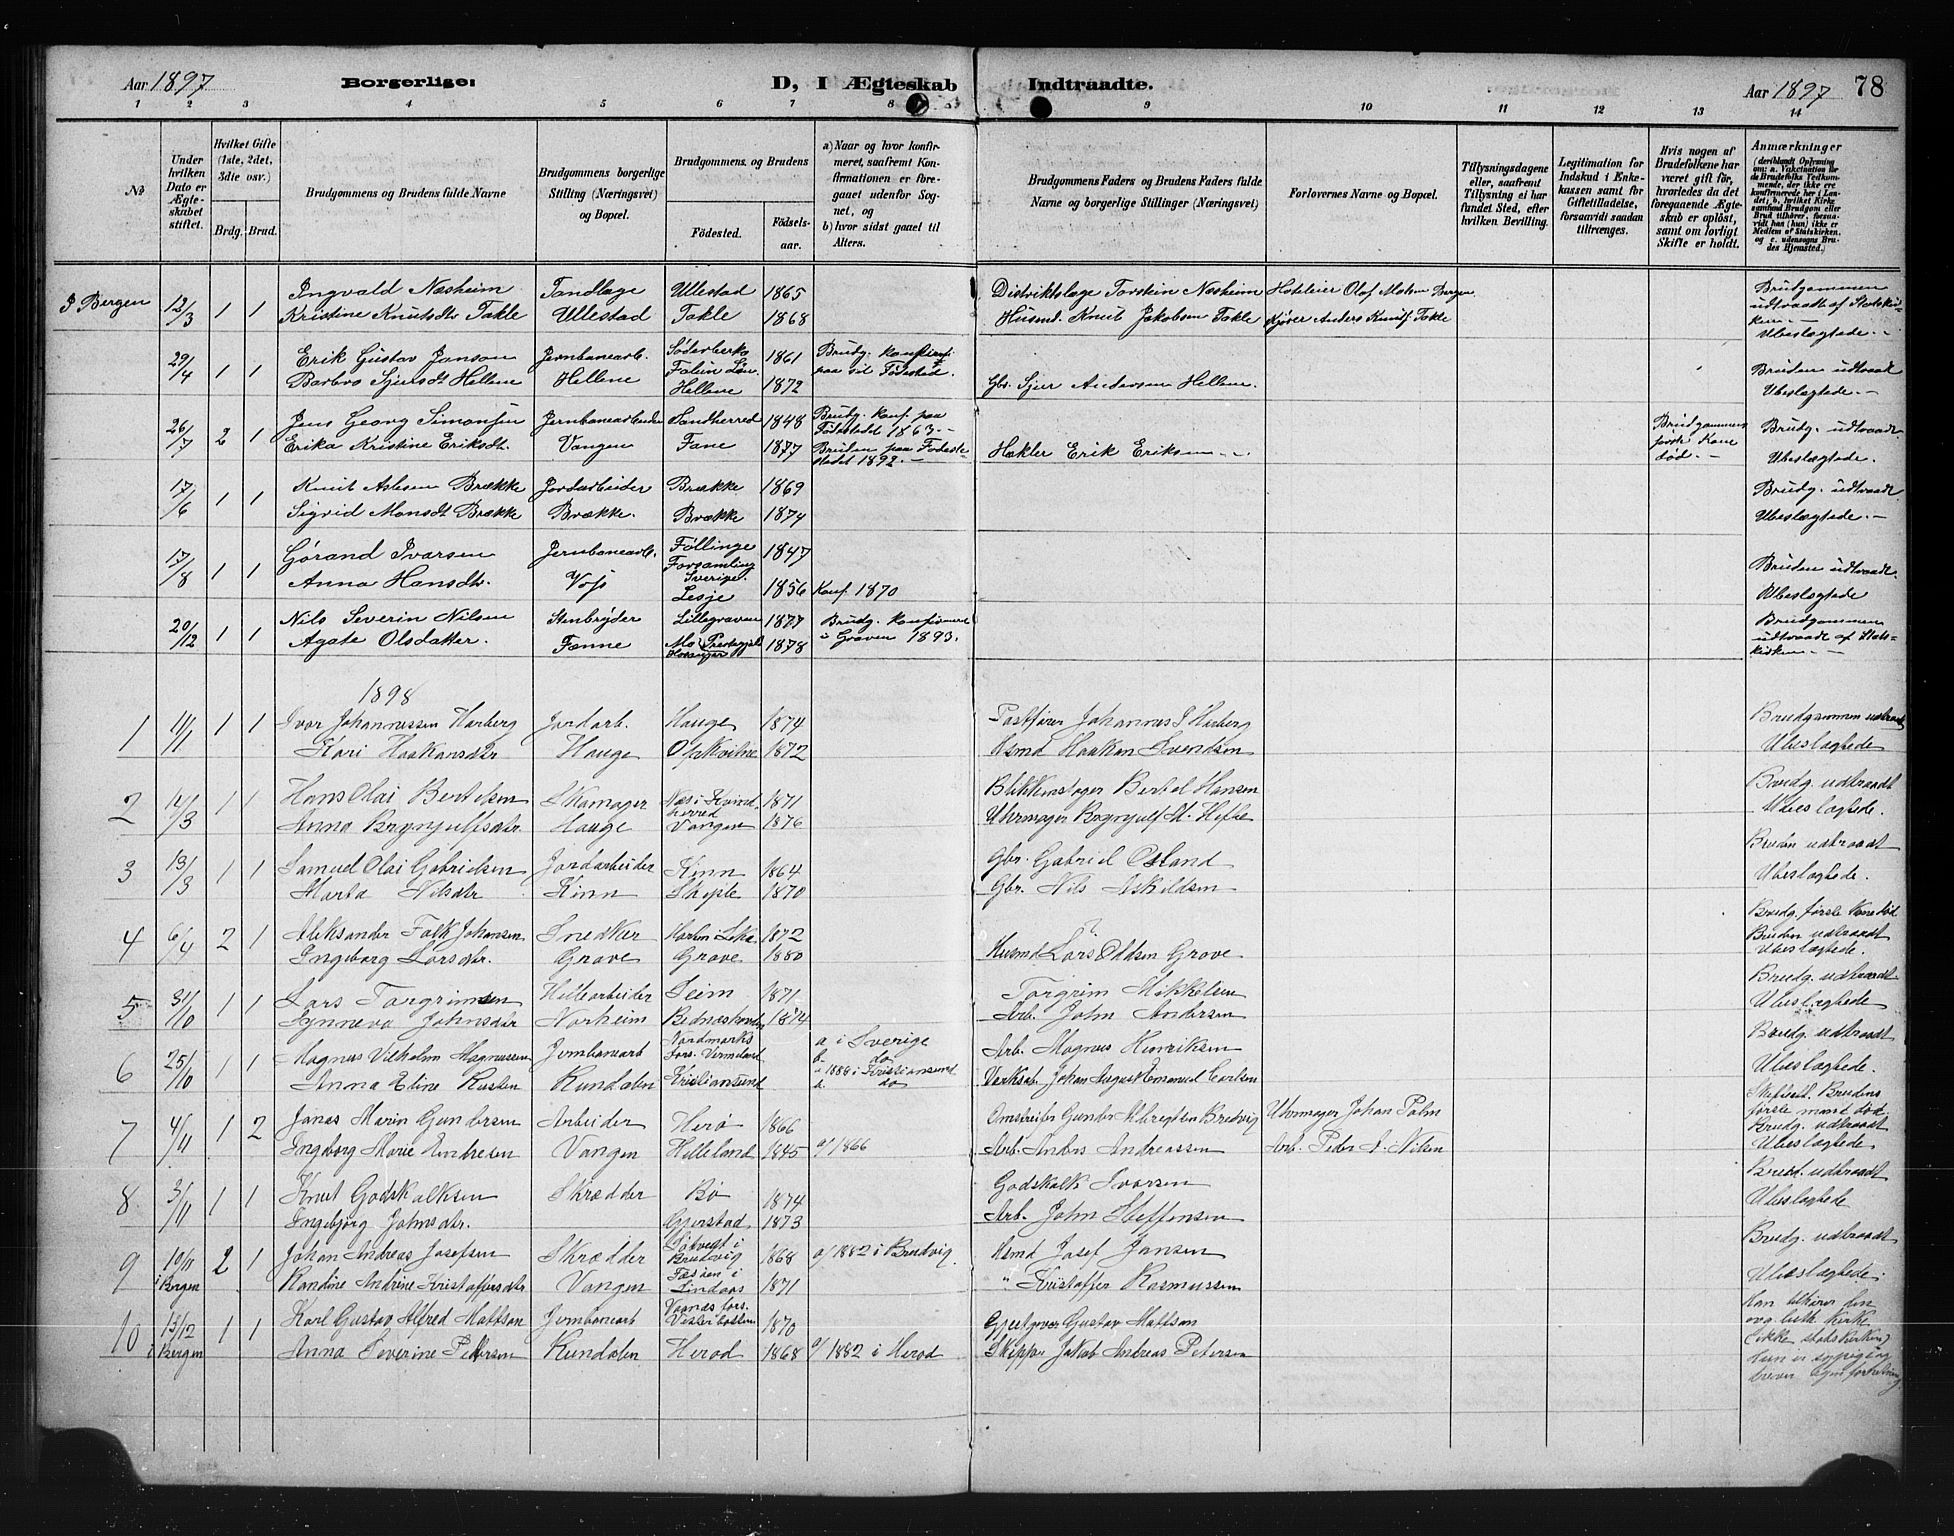 Aar 1897 Borgerlige: D, I Ægteskab Indtraadte. Aar 1897 78
1 2 3 4 5 6 7 8 9 10 11 12 13 14
No
Under hvilken Dato er Ægteskabet stiftet.
Hvilket Gifte (1ste, 2det, 3die osv.)
Brdg. Brud.
Brudgommens og Brudens fulde Navne
Brudgommens borgerlige Stilling (Næringsvei) og Bopæl.
Brudgommens og Brudens
Fødested. Fødselsaar.
a) Naar og hvor konfirmeret, saafremt Konfirmationen er foregaaet udenfor Sognet, og
b) hvor sidst gaaet til Alters.
Brudgommens Faders og Brudens Faders fulde Navne og borgerlige Stillinger (Næringsvei)
Forlovernes Navne og Bopæl.
Tillysningsdagene eller, saafremt Tillysning ei har fundet Sted, efter hvilken Bevilling.
Legitimation for Indskud i Enkekassen samt for Giftetilladelse, forsaavidt saadan tiltrænges.
Hvis nogen af Brudefolkene har været gift før, hvorledes da det foregaaende Ægteskab er opløst, samt om lovligt Skifte er holdt.
Anmærkninger
I Bergen 12/3 1 1 Ingvald Næsheim Tandlæge Ullestad 1865 Distriktslæge Torstein Næsheim Hoteleier Olaf Matsen Bergen Brudgommen
Kristine Knutsdtr Takle Ullestad Takle 1868 Husmd. Knut Jakobsen Takle Kjører Anders Knutss. Takle udtraadt af Statskirken
Ubeslægtede.
29/4 1 1 Erik Gustav Janson Jernbanearb. 1861 Brudg. konfirm. Bruden udtraadt
Barbro Sjursdt Hellene Hellene Hellene 1872 paa sit Fødested. Gbr. Sjur Andersen Hellene. Ubeslægtede.
26/7 2 1 Jens Georg Simonsen Jernbanearbeider Sandherred 1848 Brudg. konf. paa Fødestedet 1863. Brudgommens første Kone død. Brudg. udtraadt
Erika Kristine Eriksdt. Vangen Fane 1877 Bruden paa Fødestedet 1892. Hækler Erik Eriksen Ubeslægtede.
17/6 1 1 Knut Aslesen Brække Jordarbeider Brække 1869 Brudg. udtraadt
Sigrid Monsdt Brække Brække. Brække 1874 Ubeslægtede.
17/8 1 1 Gørand Ivarsen Jernbanearb. Føllinge Forsamling Sverige. 1847 Bruden udtraadt.
Anna Hansdt. Voss Lesje 1856 Konf 1870 Ubeslægtede
20/12 1 1 Nils Severin Nilsen Stenbryder Lillegraven 1877 Brudg. konfirmeret Brudgommen
Agate Olsdatter. Fænne Mo Prestegjeld 1878 i Graven 1893. udtraadt af Statskirken
1898
1 11/1 1 1 Ivar Johannessen Harberg Jordarb. Hauge 1874 Postfører Johannes I Harberg Brudgommen udtraadt
Kari Haakansdtr Hauge Opkvitne 1872 Hsmd Haakan Svendsen Ubeslægtede
2 14/3 1 1 Hans Olai Bertelsen Skomager Næs i Kvindherred 1871 Blikkenslager Bertel Hansen Brudg. udtraadt
Anna Brynjulfsdtr Hauge Vangen 1876 Uhrmager Brynjulf M. Hefte Ubeslægtede.
3 13/3 1 1 Samuel Olai Gabrielsen Jordarbeider Kinn 1864 Gbr. Gabriel Osland Bruden udtraadt
Marta Nilsdtr Kinn Skeple 1870 Gbr. Nils Askildsen Ubeslægtede.
4 6/4 2 1 Aleksander Falk Johansen Snedker 1872 Brudg. første Kone død
Ingeborg Larsdtr. Grave Grave 1880 Husmd Lars Oddsen Grove Bruden udtraadt Ubeslægtede.
5 31/10 1 1 Lars Torgrimsen Seim 1871 Torgrim Mikkelsen Brudg. udtraadt
Synneva Johnsdtr Norheim 1874 Arb. John Andersen Ubeslægtede
6 25/10 1 1 Magnus Vilhelm Magnussen Jernbanearb Nordmarks Fors. Vermeland a i Sverige Arb. Magnus Henriksen Brudg. udtraadt
b do
Anna Eline Rusten Rundalen Kristiansund a 1888 i Kristiansund Verksarb. Johan August Emanuel Carlsen Ubeslægtede.
b do
7 4/11 1 2 Jonas Marin Gundersen Arbeider Herø 1866 Uhrmager Johan Palm Skifteatt. Brudens første mand død
Ingeborg Marie Endresen Vangen Helleland 1845 a/ 1866 Arb. Anders Andreassen Arb. Peder A. Nilsen Brudg. udtraadt Ubeslægtede
8 3/11 1 1 Knut Godskalksen Skrædder Bø 1874 Godskalk Ivarsen Brud. udtraadt
Ingebjørg Johnsdtr. Gjerstad 1873 Arb. John Steffensen Ubeslægtede
9 10/11 2 1 Johan Andreas Josefsen Skrædder Bruvig 1868 a/ 1882 i Bruvig. Hsmd Josef Jansen Brudg. udtraadt
i Bergen Kandine Andrine Kristoffersdtr Vangen Lindaas 1871 " Kristoffer Rasmussen Ubeslægtede.
10 13/12 1 1 Karl Gustav Alfred Mattson Jernbanearb Vesterbotten 1870 Gjestgiver Gustav Mattson Han tilhører den evg. luth. kirke (ikke statskirken)
i Bergen Anna Severine Petersen Rundalen Herod 1868 a/ 1882 i Herod Skipper Jakob Andreas Petersen